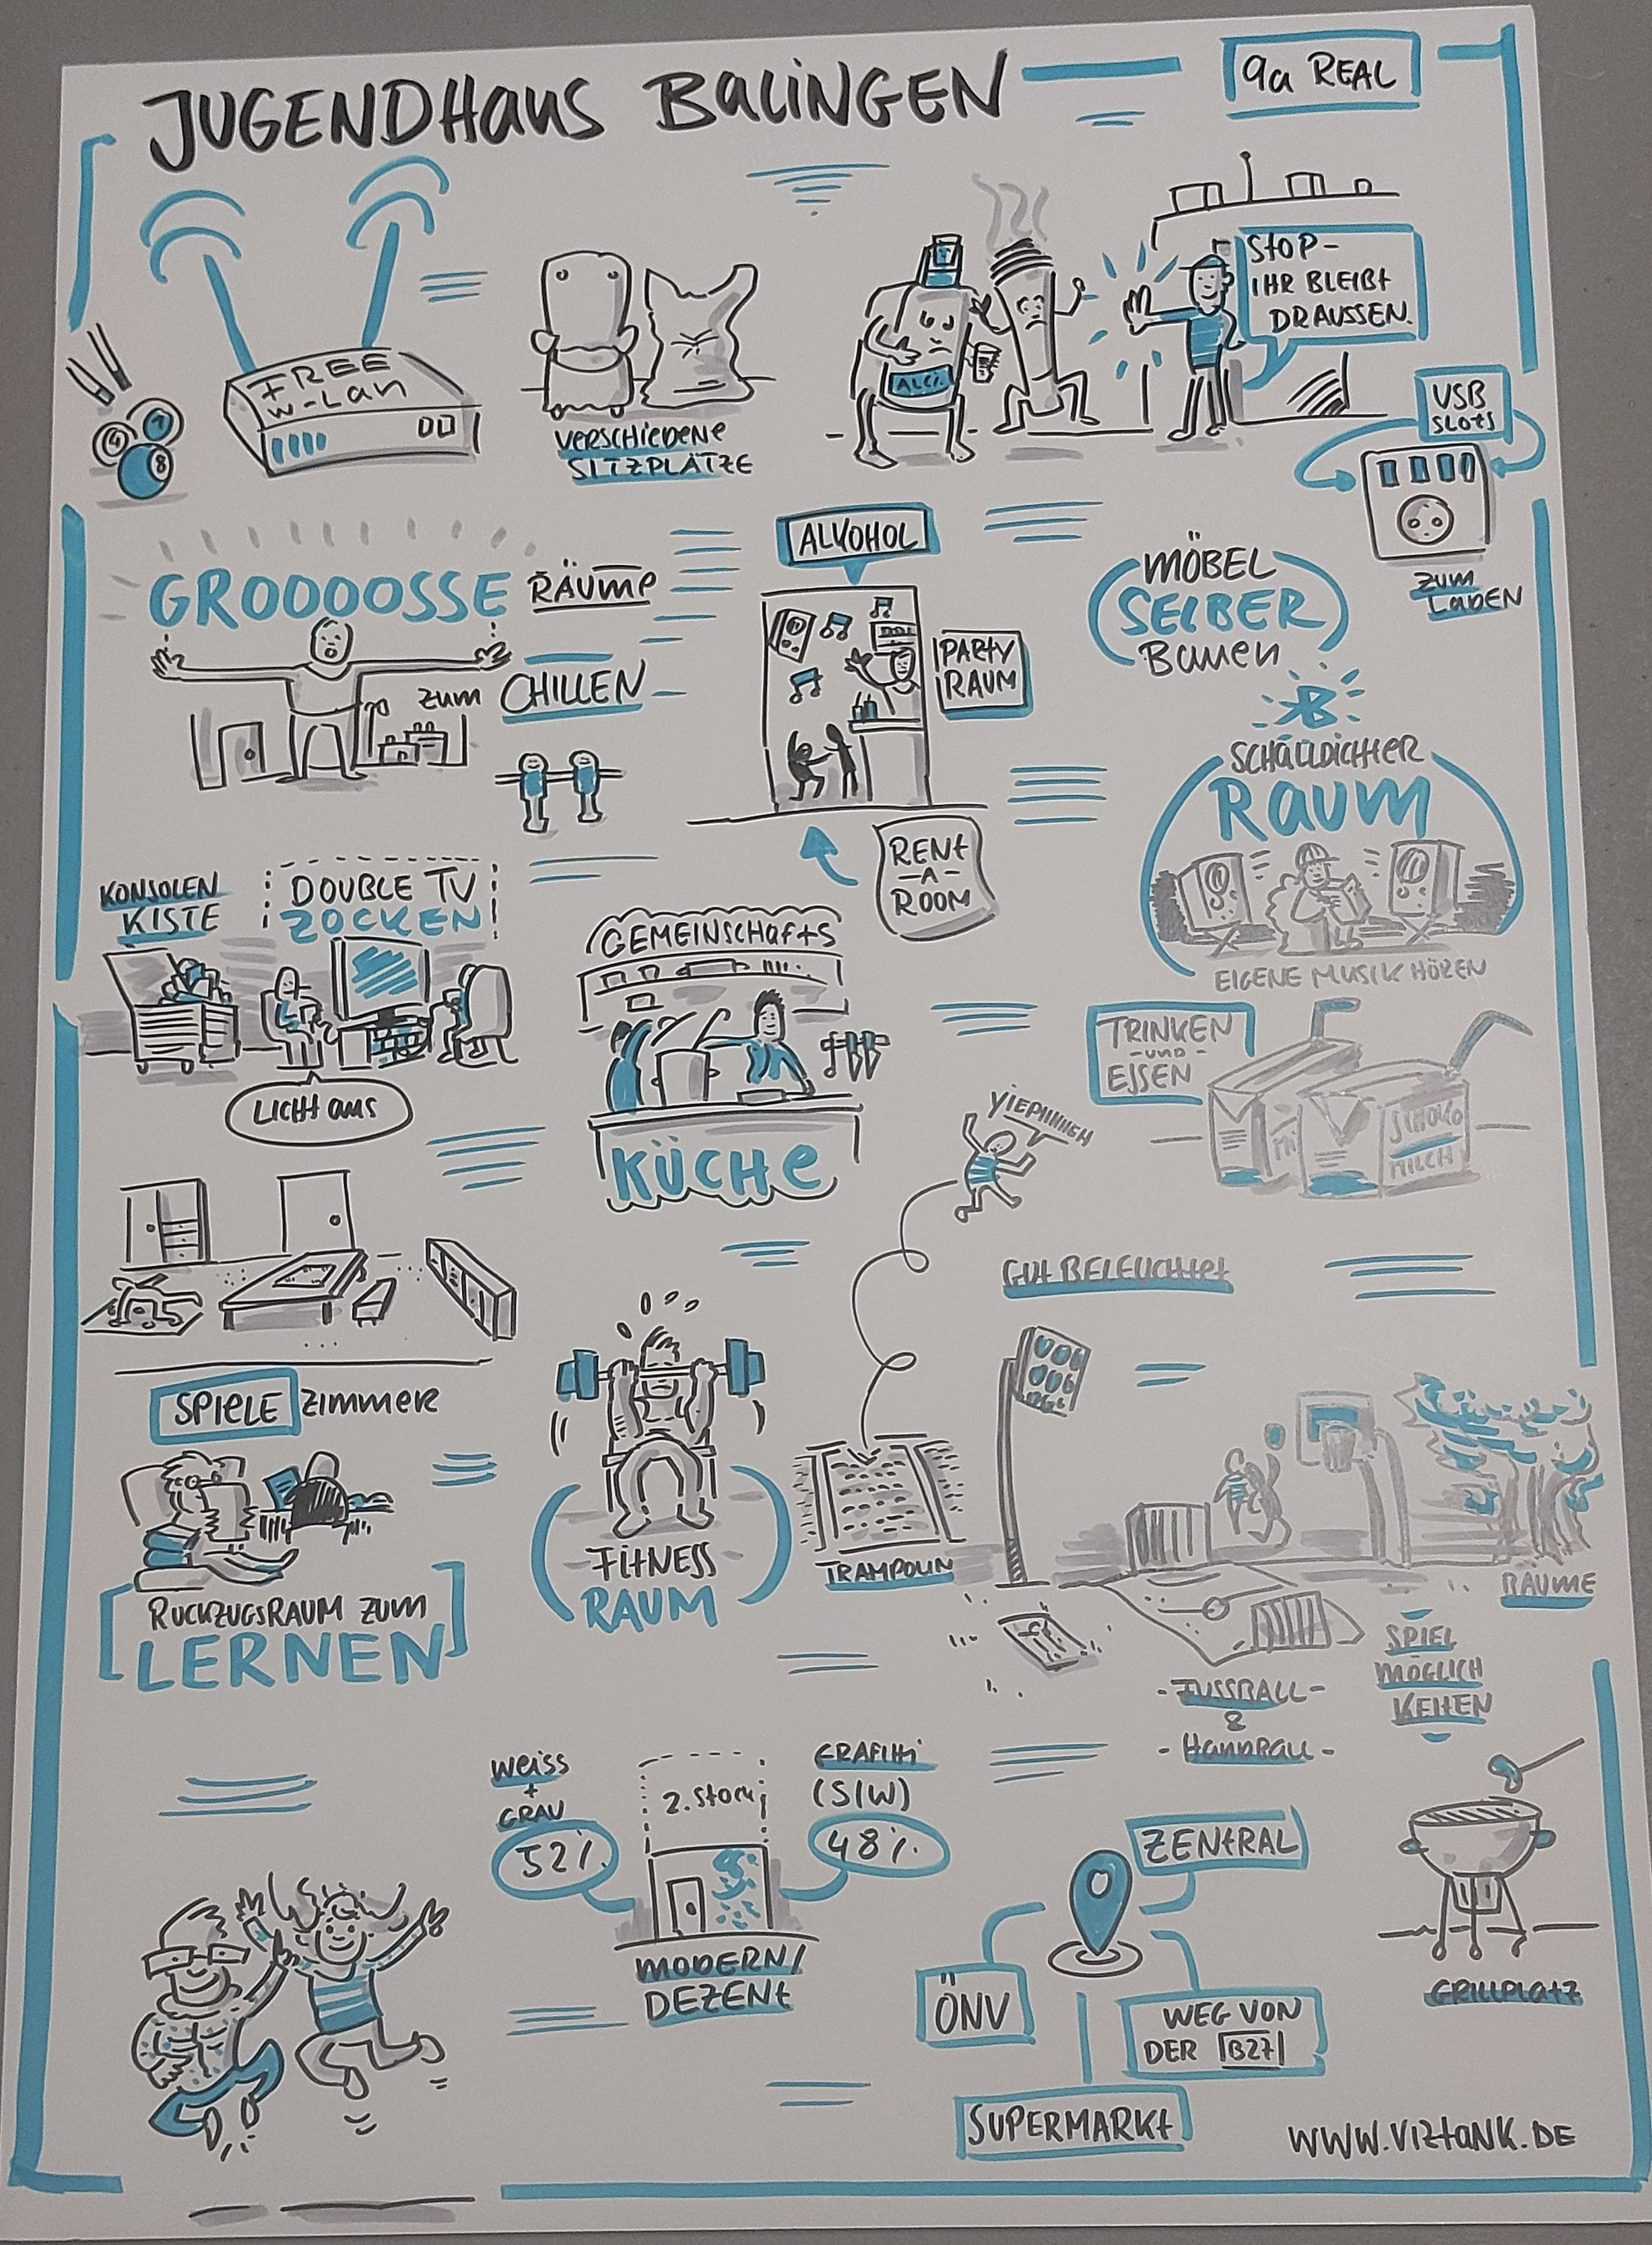 JUGENDHaus BaLiNGEN
9a REAL
FREE
W-Lan
4
7
8
VERSCHiEDENE
SITZPLÄTZE
ALC%
StOP -
IHR BLEIBt
DRAUSSEN.
USB
SLOtS
ZUM
LaDEN
GROOOOSSE RÄUMe
ZUM CHILLEN
ALKOHOL
PARTY
RAUM
RENt
-A-
ROOM
MÖBEL
SELBER
Bauen
SCHALLDICHtER
Raum
EIGENE MUSIK HÖREN
KONSOLEN
KISTE
DOUBLE TV
ZOCKEN
LiCHt aus
GEMEiNSCHaftS
KÜCHe
TRINKEN
-UND-
ESSEN
SCHOKO
MILCH
YIEPIIIIIEH
GUt BELEUCHtet
SPIELE ZIMMER
RÜCKZUGSRAUM ZUM
LERNEN
FitNESS
RAUM
TRAMPOLIN
BÄUME
SPIEL
MÖGLICH
KEItEN
- FUSSBALL -
&
- HanDBaLL -
WEiSS
+
GRAU
52%
2. Stock
GRAFItti
(S/W)
48%
MODERN/
DEZENt
ZENtRAL
ÖNV
WEG VON
DER B27
SUPERMARKt
GRILLPLatZ
WWW.VIZtaNK.DE